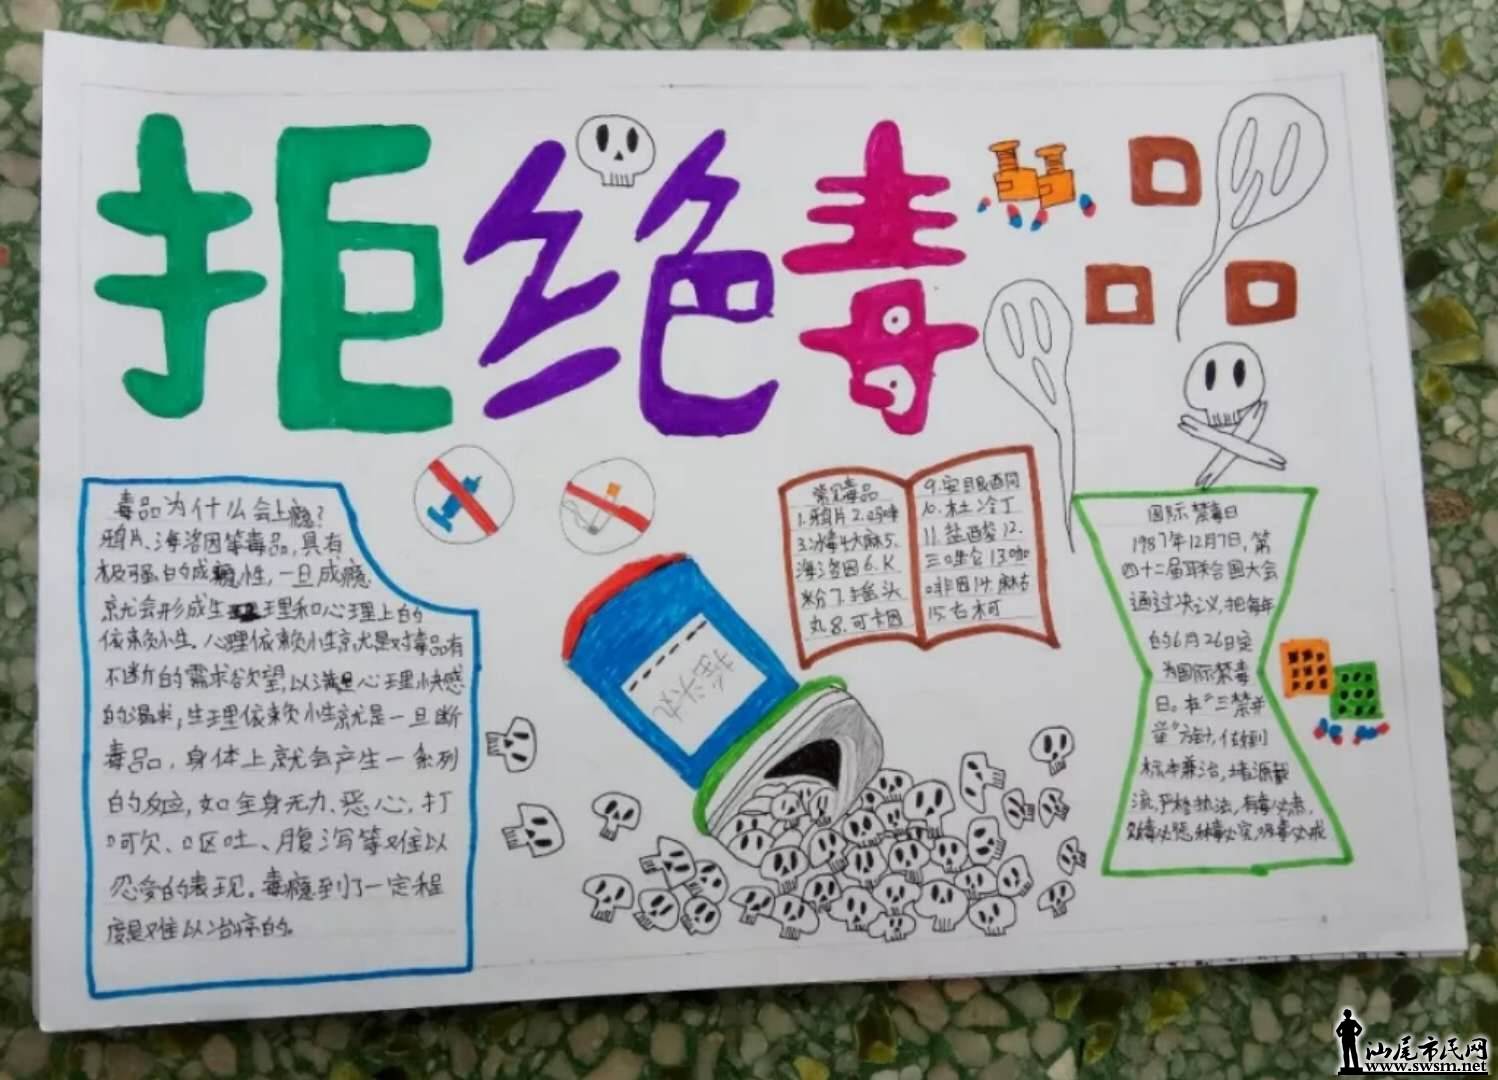 拒绝毒品
毒品为什么会上瘾?
鸦片、海洛因等毒品,具有
极强的成瘾性,一旦成瘾,
就会形成生理和心理上的
依赖性。心理依赖性就是对毒品有
不断的需求欲望,以满足心理快感
的渴求,生理依赖性就是一旦断
毒品,身体上就会产生一系列
的反应,如全身无力、恶心,打
呵欠、呕吐、腹泻等难以
忍受的表现。毒瘾到了一定程
度是难以治疗的。
常见毒品
1.鸦片2.吗啡
3.冰毒4.大麻5.
海洛因6.K
粉7.摇头
丸8.可卡因
9.安眠酒同
10.杜冷丁
11.盐酸
12.
三唑仑13.咖
啡因14.麻古
15.古柯
国际禁毒日
1987年12月7日,第
四十二届联合国大会
通过决议,把每年
的6月26日定
为国际禁毒
日。在"三禁并
举"方针,
标本兼治,堵源截
流,严格执法,有毒必肃,
贩毒必惩,种毒必究,吸毒必戒
汕尾市民网
www.swsm.net